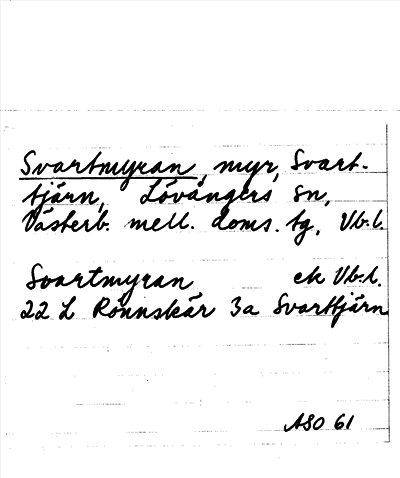 Svartmyran, myr, Svart-
tjärn, Lövångers sn,
Västerb. mell. doms. tg, Vb.l.
Svartmyran ek Vb.l.
22 L Rönnskär 3a Svarttjärn
ASO 61